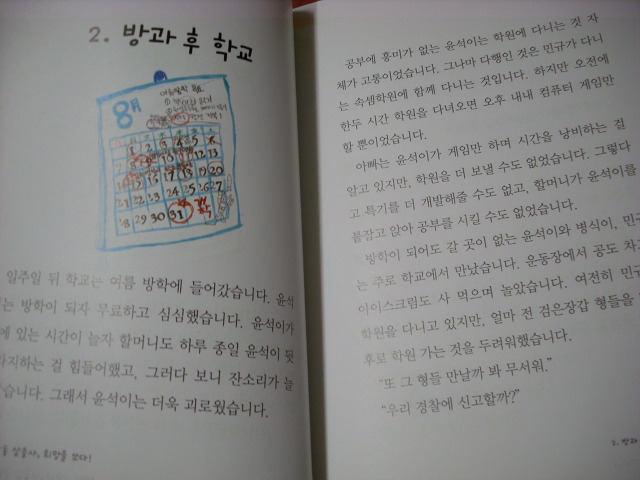 2. 방과 후 학교
8月
1 2 3 4 5 6
31
일주일 뒤 학교는 여름 방학에 들어갔습니다. 윤석
는 방학이 되자 무료하고 심심했습니다. 윤석이가
에 있는 시간이 늘자 할머니도 하루 종일 윤석이 뒷
치하는 걸 힘들어했고, 그러다 보니 잔소리가 늘
습니다. 그래서 윤석이는 더욱 괴로웠습니다.
희망을 쏘다!
공부에 흥미가 없는 윤석이는 학원에 다니는 것 자
체가 고통이었습니다. 그나마 다행인 것은 민규가 다니
는 속셈학원에 함께 다니는 것입니다. 하지만 오전에
한두 시간 학원을 다녀오면 오후 내내 컴퓨터 게임만
할 뿐이었습니다.
아빠는 윤석이가 게임만 하며 시간을 낭비하는 걸
알고 있지만, 학원을 더 보낼 수도 없었습니다. 그렇다
고 특기를 더 개발해줄 수도 없고, 할머니가 윤석이를
붙잡고 앉아 공부를 시킬 수도 없었습니다.
방학이 되어도 갈 곳이 없는 윤석이와 병식이, 민
는 주로 학교에서 만났습니다. 운동장에서 공도 차
아이스크림도 사 먹으며 놀았습니다. 여전히 민
학원을 다니고 있지만, 얼마 전 검은장갑 형들을
후로 학원 가는 것을 두려워했습니다.
“또 그 형들 만날까 봐 무서워.”
“우리 경찰에 신고할까?”
2. 방과